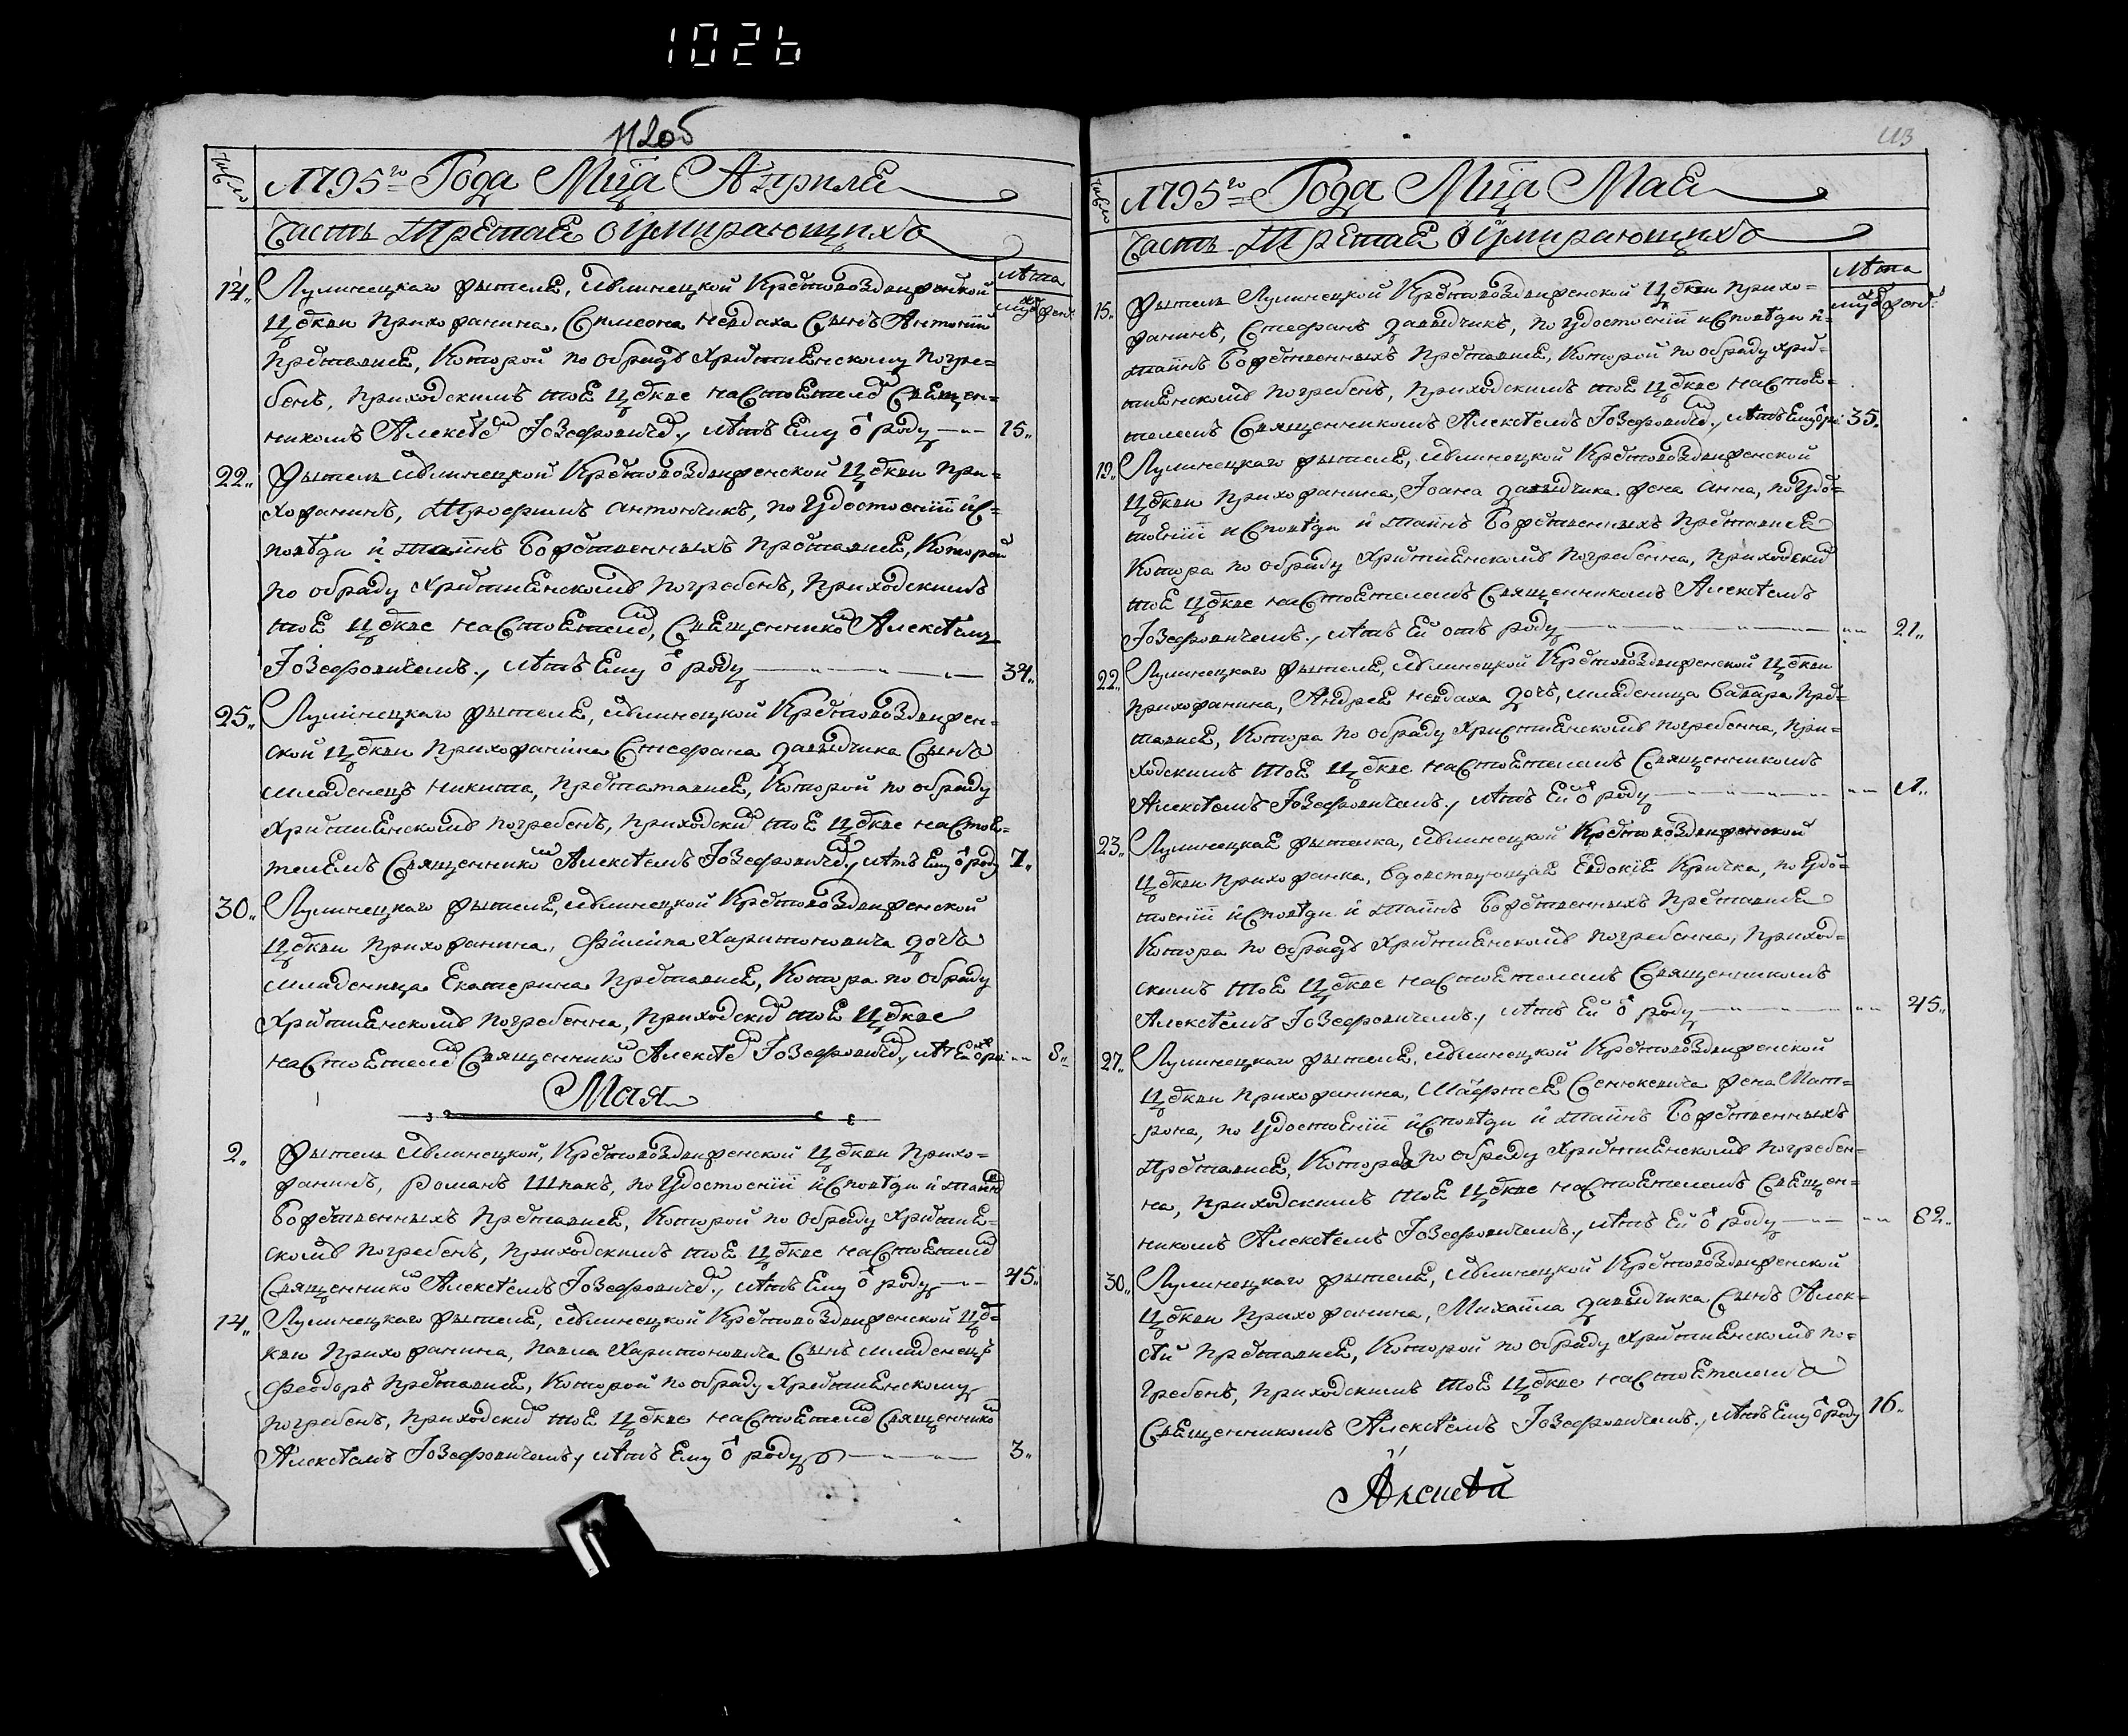 1026
112об
число
1795го Года Мца Априлѧ
Часть Третаѧ о умирающихъ
лѣта
муж жен
14. Лулинецкаго жителѧ, Лулинецкой Крестовоздвиженской
Цркви прихожанина, Симеона Невдаха Сынъ Антоній
престависѧ, Которой по обряду Христиѧнскому погре-
бенъ, приходскимъ тоѧ Цркве настоѧтелем Свѧщен-
никомъ Алексѣем Іозефовичем, лѣтъ Ему от роду 15.
22. Житель Лулинецкой Крестовоздвиженской Цркви при-
хожанинъ, Трофимъ Антончикъ, по Удостоеніи ис-
повѣди и таинъ Божественныхъ престависѧ, Которой
по обряду Христиѧнскомъ погребенъ, приходскимъ
тоѧ Цркве настоѧтелем, Свѧщенником Алексѣемъ
Іозефовичемъ, лѣтъ Ему от роду 34.
25. Лулинецкаго жителѧ, Лулинецкой Крестовоздвижен-
ской Цркви прихожанина Стефана Давидчика Сынъ
младенецъ Никита, преставависѧ, Которой по обряду
Христиѧнскомъ погребенъ, приходским тоѧ Цркве настоѧ-
телемъ Священником Алексѣемъ Іозефовичем, лѣтъ Ему от роду 7.
30. Лулинецкаго жителѧ, Лулинецкой Крестовоздвиженской
Цркви прихожанина, Филипа Харитоновича дочъ
младеница Екатерина престависѧ, Котора по обряду
Христиѧнскомъ погребенна, приходским тоѧ Цркве
настоѧтелем Священником Алексѣем Іозефовичем, лѣт Ей от ро: 8.
Мая
2. Житель Лулинецкой, Крестовоздвиженской Цркви прихо-
жанинъ, Романъ Шпакъ, по Удостоеніи исповѣди и таинъ
Божественныхъ престависѧ, Которой по обряду Христиѧн-
скомъ погребенъ, приходскимъ тоѧ Цркве настоѧтелем
Священником Алексѣемъ Іозефовичем, лѣтъ Ему от роду 45.
14. Лулинецкаго жителѧ, Лулинецкой Крестовоздвиженской Цр-
кви прихожанина, Павла Харитоновича Сынъ младенецъ
Феодоръ престависѧ, Которой по обряду Христиѧнскому
погребенъ, приходским тоѧ Цркве настоѧтелем Священником
Алексѣемъ Іозефовичемъ, лѣтъ Ему от роду 3.
113
число
1795го Года Мца Маѧ
Часть Третаѧ о умирающихъ
лѣта
муж жен:
15. Житель Лулинецкой Крестовоздвиженской Цркви прихо-
жанинъ, Стефанъ Давидчикъ, по Удостоеніи исповѣди и
таинъ Божественныхъ престависѧ, Которой по обряду Хрис-
тиѧнскомъ погребенъ, приходскимъ тоѧ Цркве настоѧ-
телемъ Священникомъ Алексѣемъ Іозефовичем, лѣтъ Ему от ро: 35.
19. Лулинецкаго жителѧ, Лулинецкой Крестовоздвиженской
Цркви прихожанина, Іоана Давидчика жена Анна, по Удос-
тоеніи исповѣди и таинъ Божественныхъ престависѧ
Котора по обряду Христиѧнскомъ погребенна, приходским
тоѧ Цркве настоѧтелемъ Священникомъ Алексѣемъ
Іозефовичемъ, лѣтъ Ей отъ роду 21.
22. Лулинецкаго жителѧ, Лулинецкой Крестовоздвиженской Цркви
прихожанина, Андреѧ Невдаха дочъ, младеница Вавара прес-
тависѧ, Котора по обряду Христиѧнскомъ погребенна, при-
ходскимъ тоѧ Цркве настоѧтелемъ Священникомъ
Алексѣемъ Іозефовичемъ, лѣтъ Ей от роду 1.
23. Лулинецкаѧ жителка, Лулинецкой Крестовоздвиженской
Цркви прихожанка, вдовствующаѧ Евдокіѧ Кричка, по Удос-
тоеніи исповѣди и таинъ Божественныхъ престависѧ
Котора по обрядъ Христиѧнскомъ погребенна, приход-
скимъ тоѧ Цркве настоѧтелемъ Священникомъ
Алексѣемъ Іозефовичемъ, лѣтъ Ей от роду 45.
27. Лулинецкаго жителѧ, Лулинецкой Крестовоздвиженской
Цркви прихожанина, Мафтеѧ Сенюкевича жена Мат-
рона, по Удостоеніи исповѣди и таинъ Божественныхъ
престависѧ, Котораѧ по обряду Христиѧнскомъ погребен-
на, приходскимъ тоѧ Цркве настоѧтелемъ Свѧщен-
никомъ Алексѣемъ Іозефовичемъ, лѣтъ Ей от роду 62.
30. Лулинецкаго жителѧ, Лулинецкой Крестовоздвиженской
Цркви прихожанина, Михаила Давидчика Сынъ Алек-
сѣй престависѧ, Которой по обряду Христиѧнскомъ по-
гребенъ, приходскимъ тоѧ Цркве настоѧтелемъ
Свѧщенникомъ Алексѣемъ Іозефовичемъ, лѣтъ Ему от роду 16.
Алексѣй